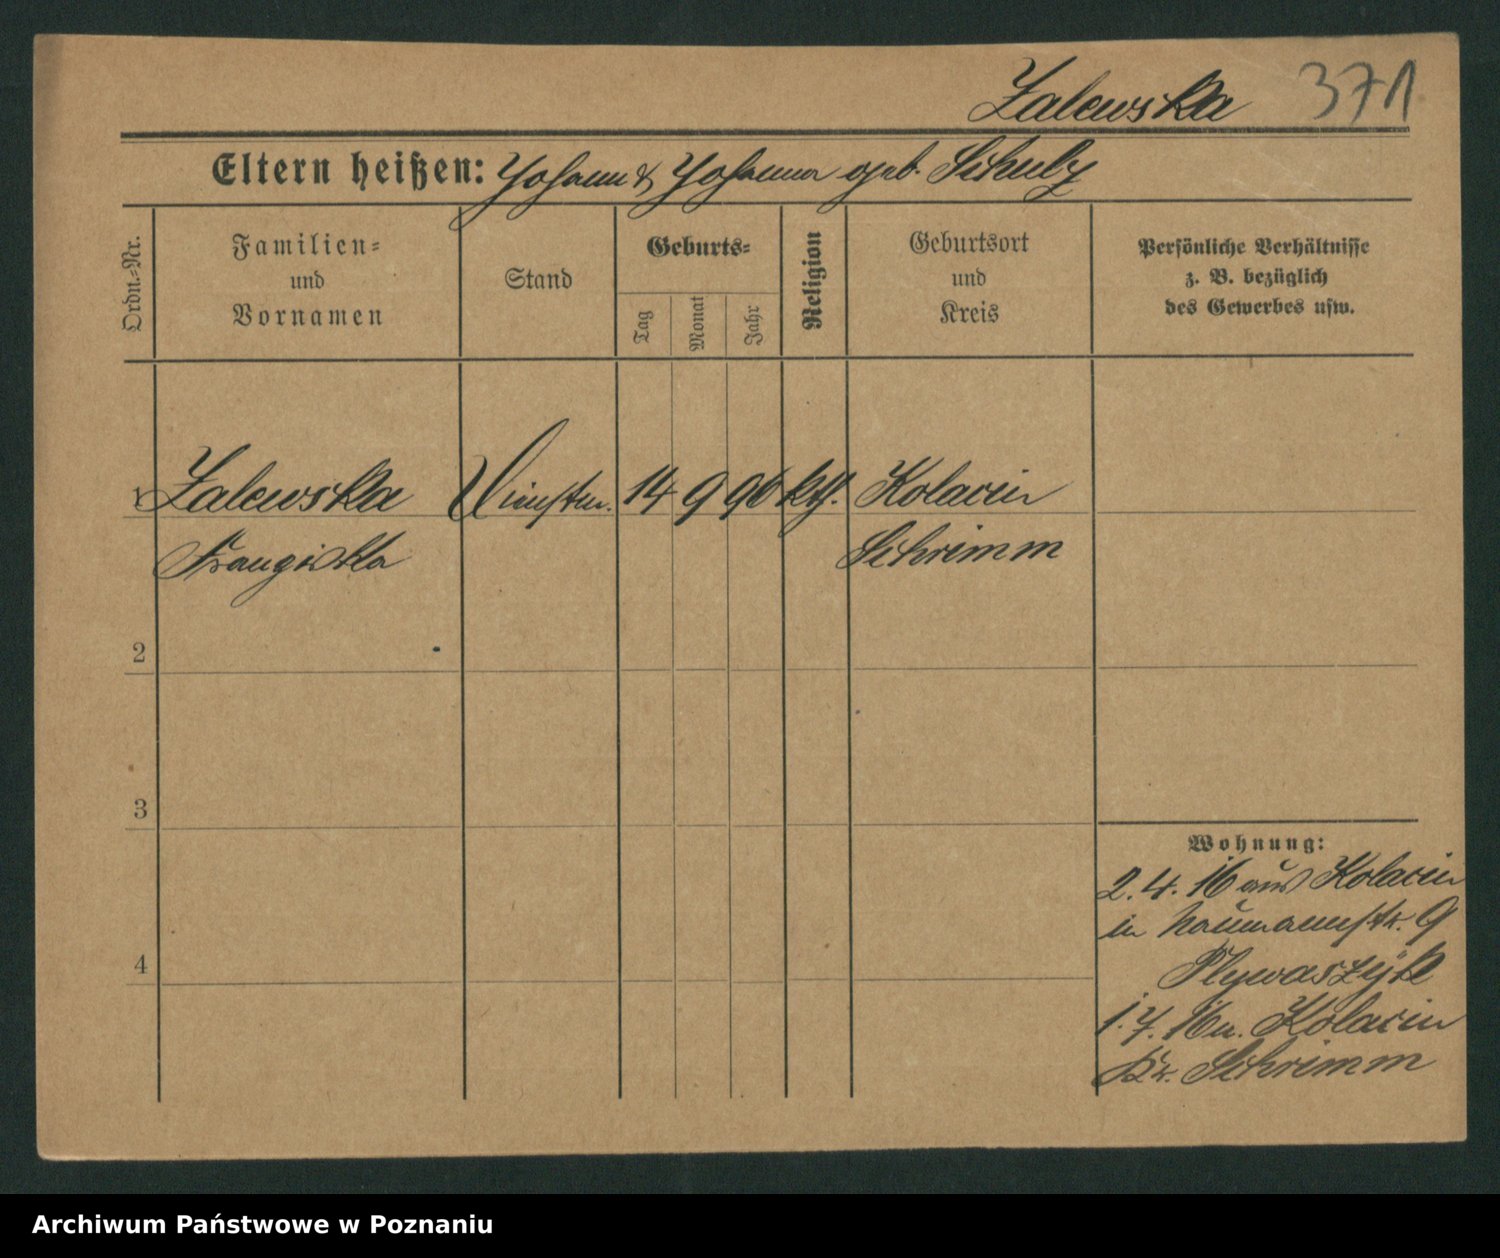 Zalewska 371
Eltern heißen: Johann & Johanna geb. Schulz
Ordn.-Nr.
Familien-
und
Vornamen
Stand
Geburts-
Tag
Monat
Jahr
Religion
Geburtsort
und
Kreis
Persönliche Verhältnisse
z. B. bezüglich
des Gewerbes usw.
1 Zalewska 14 9 96 kth. Kolacin
Franziska Schrimm
2
3
4
Wohnung:
2. 4. 16 aus Kolacin
in Naumannstr. 9
Plywaszyk
1. 7. 16 n. Kolacin
Kr. Schrimm
Archiwum Państwowe w Poznaniu